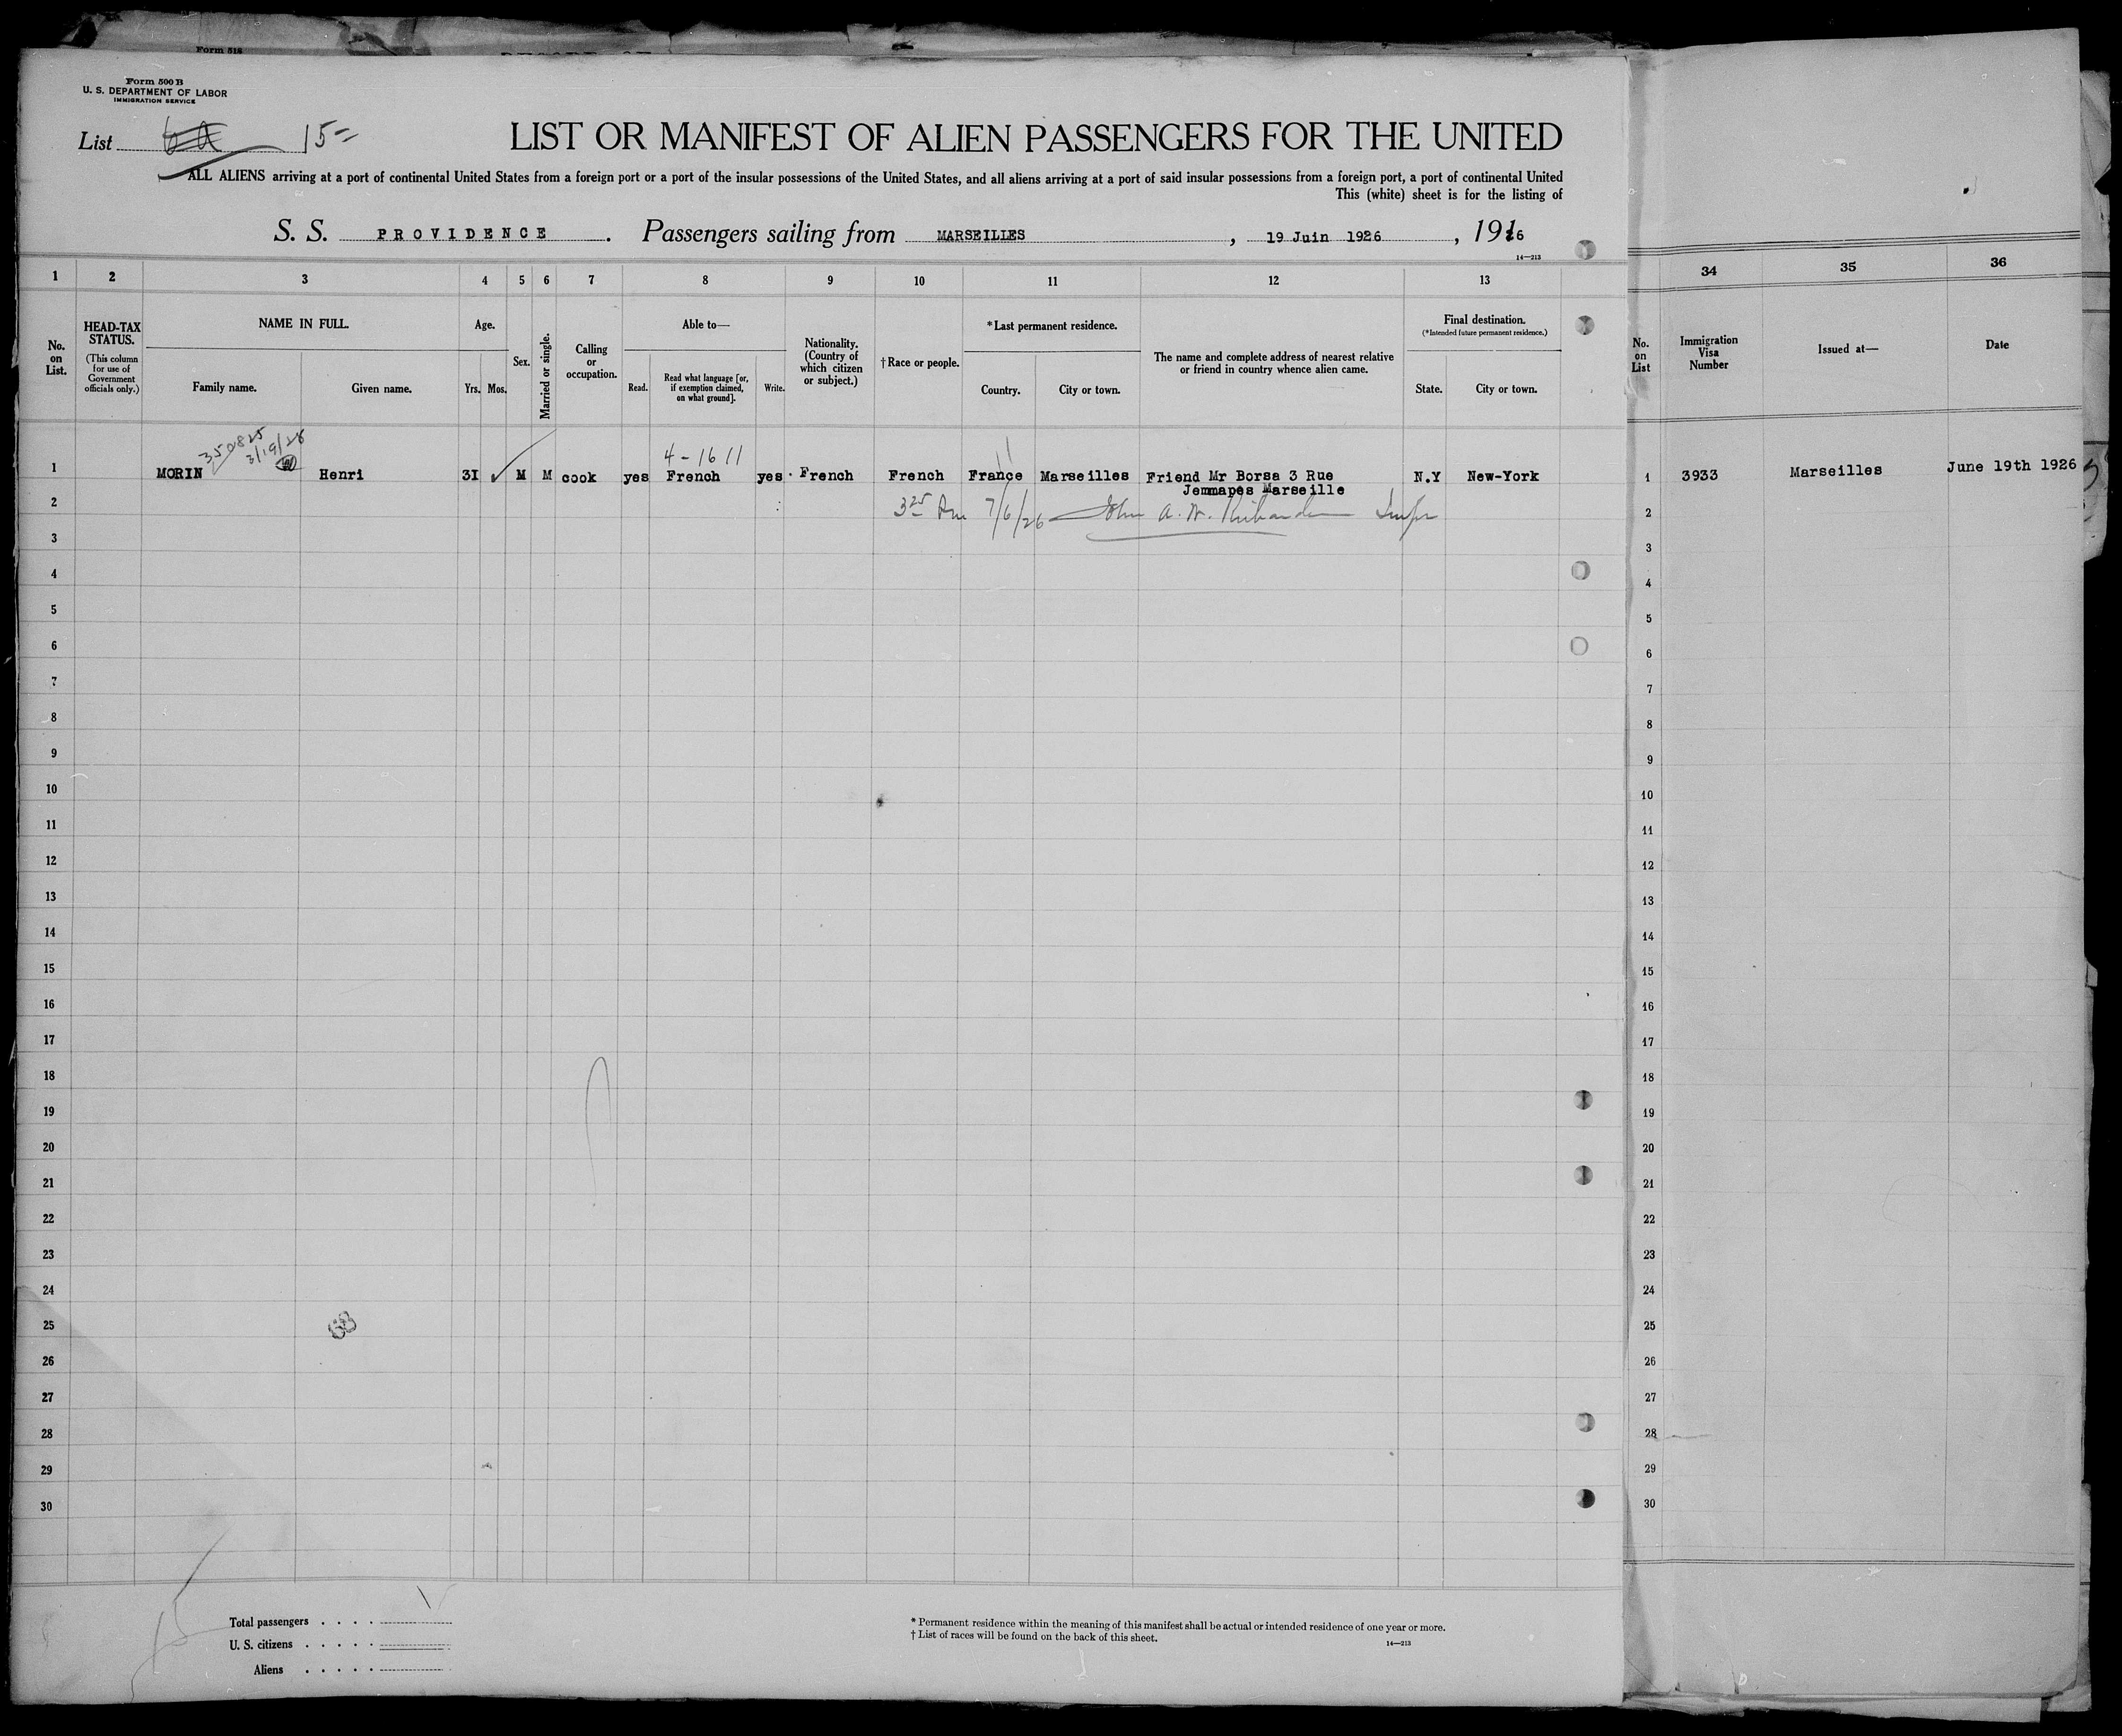 Form 518
Form 500 B
U. S. DEPARTMENT OF LABOR
IMMIGRATION SERVICE
List 15
LIST OR MANIFEST OF ALIEN PASSENGERS FOR THE UNITED
ALL ALIENS arriving at a port of continental United States from a foreign port or a port of the insular possessions of the United States, and all aliens arriving at a port of said insular possessions from a foreign port, a port of continental United
This (white) sheet is for the listing of
S. S. PROVIDENCE . Passengers sailing from MARSEILLES , 19 Juin 1926 , 1926
14—213
1 2 3 4 5 6 7 8 9 10 11 12 13 34 35 36
No. on List.
HEAD-TAX STATUS.
(This column for use of Government officials only.)
NAME IN FULL.
Family name. Given name.
Age.
Yrs. Mos.
Sex.
Married or single.
Calling or occupation.
Able to—
Read. Read what language [or, if exemption claimed, on what ground]. Write.
Nationality. (Country of which citizen or subject.)
†Race or people.
*Last permanent residence.
Country. City or town.
The name and complete address of nearest relative or friend in country whence alien came.
Final destination.
(*Intended future permanent residence.)
State. City or town.
No. on List
Immigration Visa Number
Issued at—
Date
350825
3/19/28
4-16 11
1 MORIN Henri 31 M M cook yes French yes French French France Marseilles Friend Mr Borsa 3 Rue N.Y New-York 1 3933 Marseilles June 19th 1926
Jemmapes Marseille
2 7/6/26 John A. W. 2
3 3
4 4
5 5
6 6
7 7
8 8
9 9
10 10
11 11
12 12
13 13
14 14
15 15
16 16
17 17
18 18
19 19
20 20
21 21
22 22
23 23
24 24
25 25
26 26
27 27
28 28
29 29
30 30
Total passengers . . . .
U. S. citizens . . . . .
Aliens . . . . .
* Permanent residence within the meaning of this manifest shall be actual or intended residence of one year or more.
† List of races will be found on the back of this sheet.
14—213